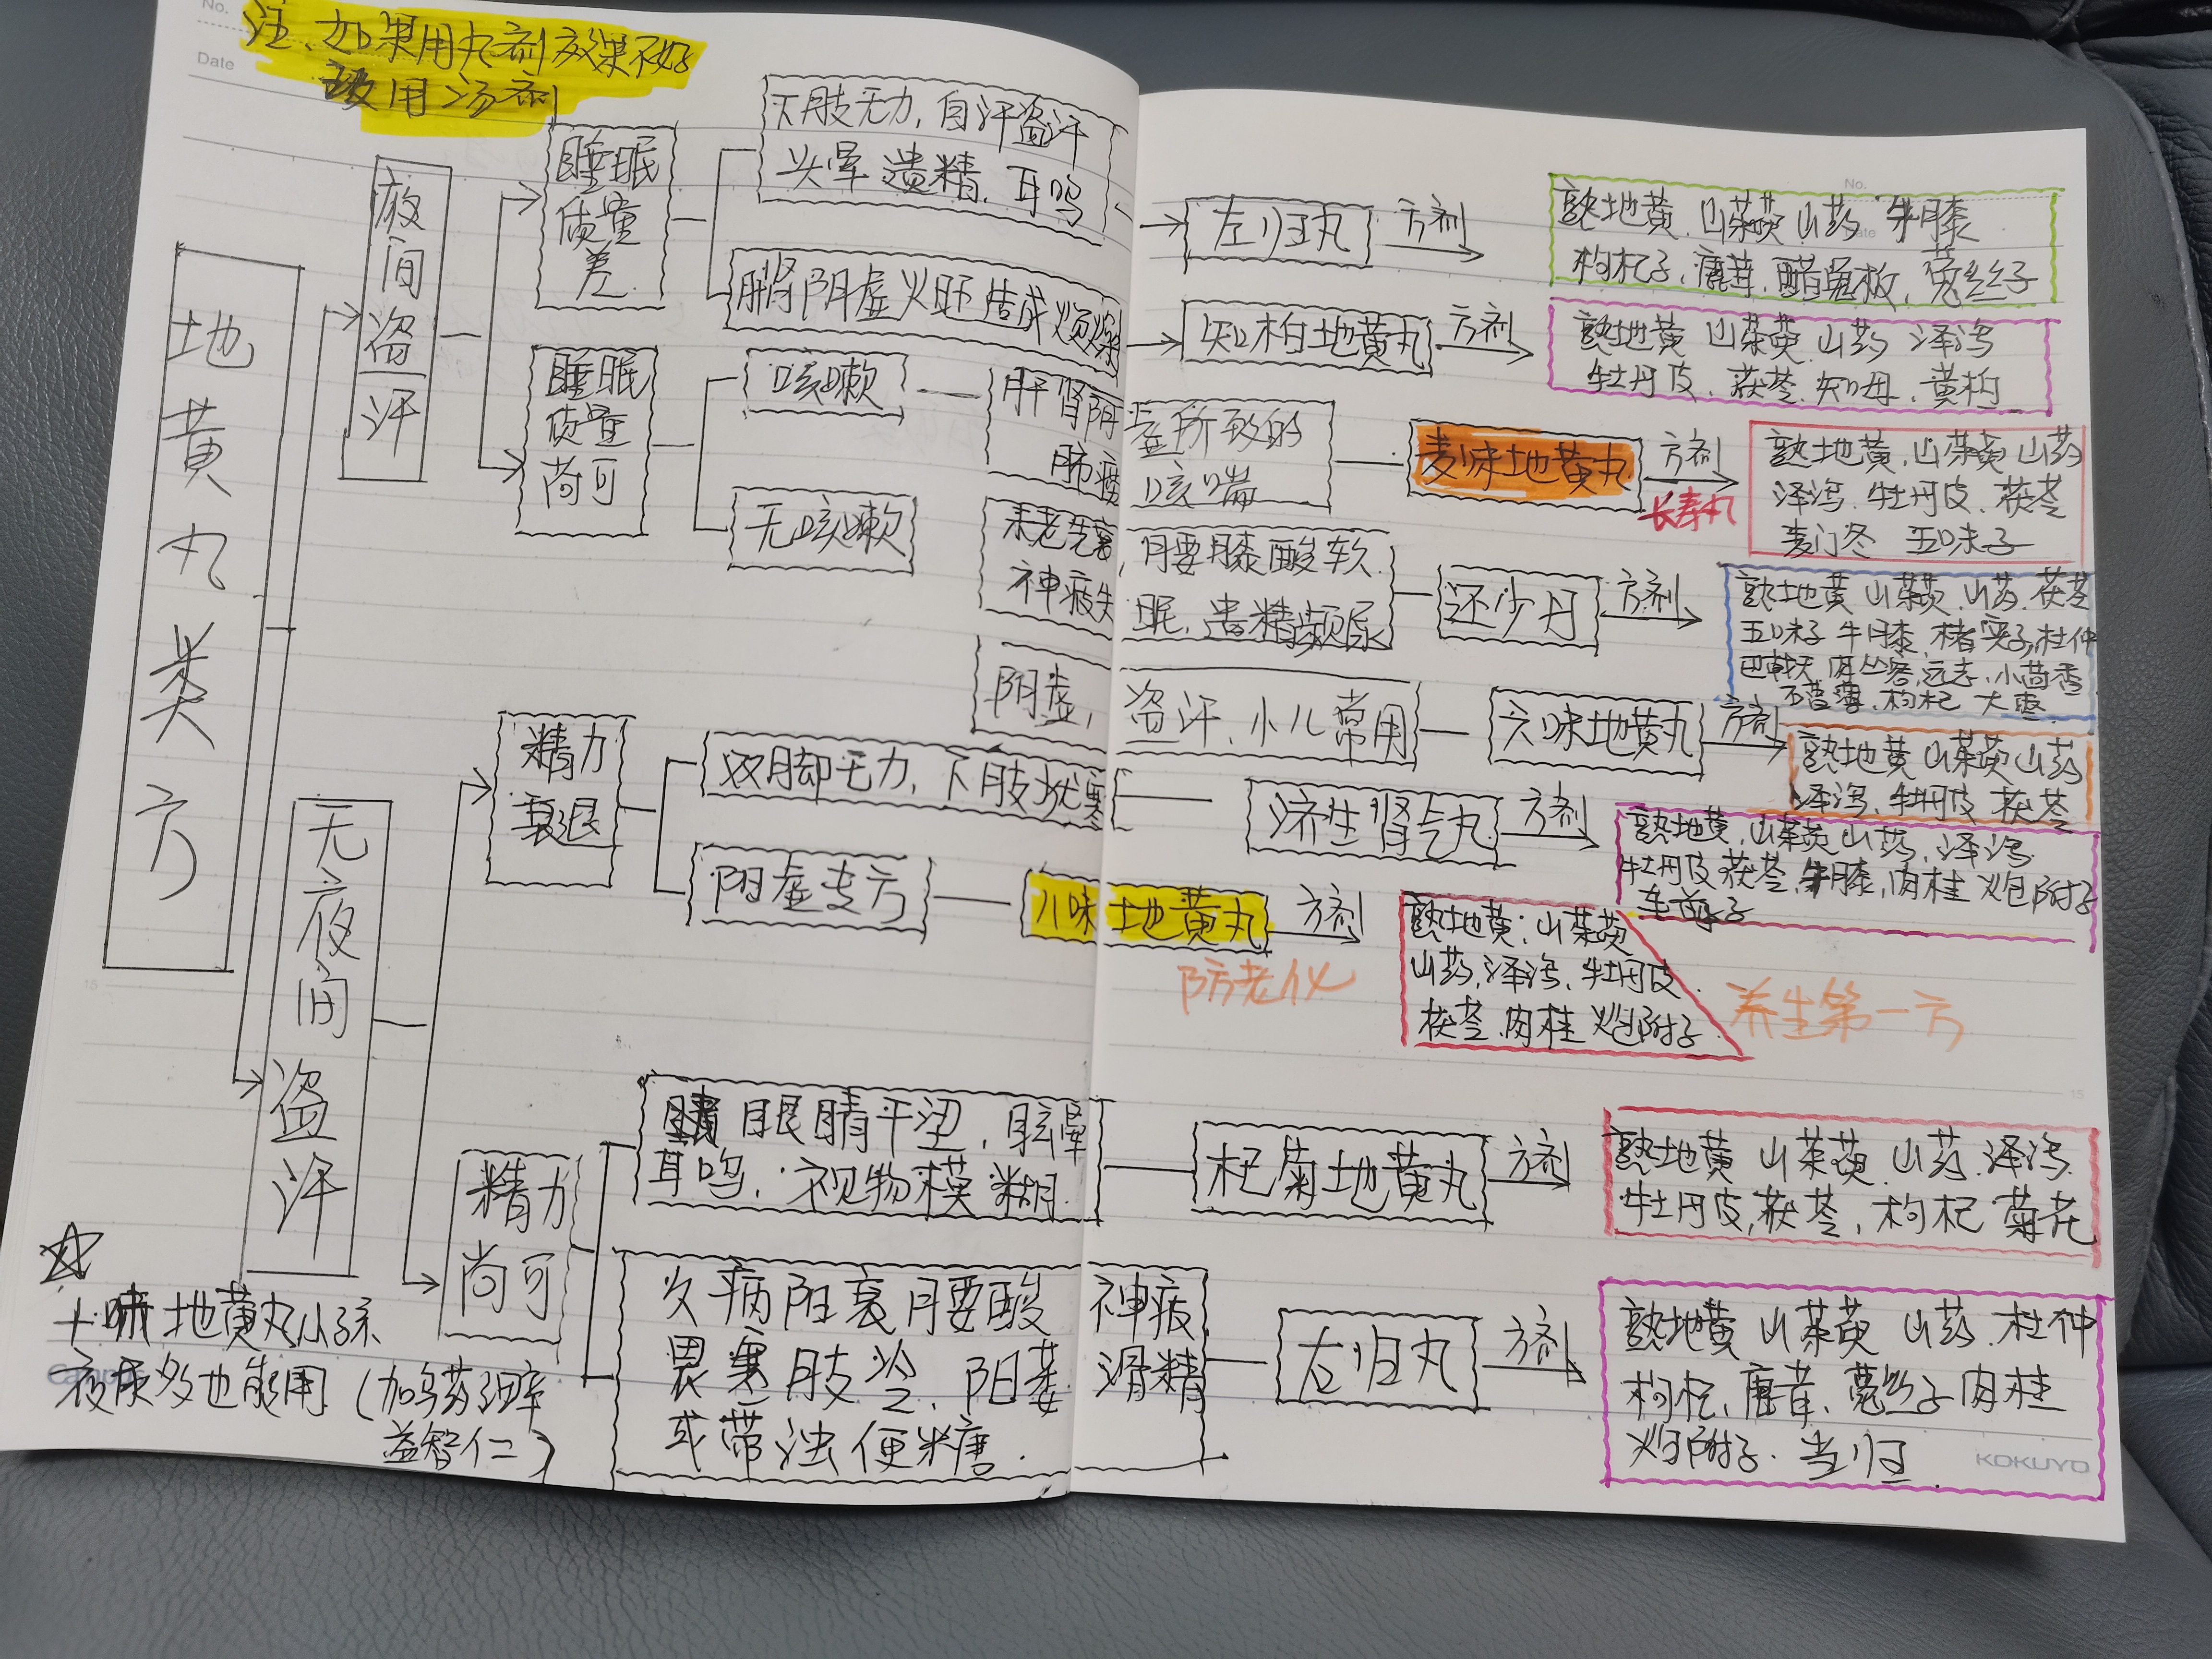 No.
Date
注、如果用丸剂效果不好
改用汤剂
地黄丸类方
夜间盗汗
睡眠
质量
差
下肢无力,自汗盗汗
头晕 遗精、耳鸣
左归丸
方剂
No.
Date
熟地黄、山茱萸 山药 牛膝
枸杞子、鹿茸、醋龟板、菟丝子
肾阴虚火旺造成烦燥
知柏地黄丸
方剂
熟地黄 山茱萸 山药 泽泻
牡丹皮、茯苓、知母、黄柏
睡眠
质量
尚可
咳嗽
肝肾阴虚所致的
肺痨 咳喘
麦味地黄丸
方剂
长寿丸
熟地黄、山茱萸 山药
泽泻、牡丹皮、茯苓
麦门冬 五味子
无咳嗽
未老先衰,腰膝酸软
神疲失眠、遗精频尿
还少丹
方剂
熟地黄 山茱萸、山药、茯苓
五味子 牛膝、楮实子,杜仲
巴戟天 肉苁蓉,远志、小茴香
石菖蒲、枸杞 大枣
阴虚,盗汗、小儿常用
六味地黄丸
方剂
熟地黄 山茱萸 山药
泽泻、牡丹皮 茯苓
无夜间盗汗
精力
衰退
双脚无力,下肢尤寒
济生肾气丸
方剂
熟地黄、山茱萸 山药、泽泻
牡丹皮 茯苓、牛膝,肉桂 炮附子
车前子
阳虚专方
八味地黄丸
方剂
防老化
熟地黄;山茱萸
山药,泽泻、牡丹皮
茯苓 肉桂 炮附子
养生第一方
精力
尚可
眼睛平涩,眩晕
耳鸣,视物模糊
杞菊地黄丸
方剂
熟地黄 山茱萸 山药、泽泻
牡丹皮,茯苓,枸杞 菊花
久病阳衰 腰酸 神疲
畏寒肢冷、阳萎 滑精
或带浊便糖
右归丸
方剂
熟地黄 山茱萸 山药 杜仲
枸杞、鹿茸、菟丝子 肉桂
炮附子、当归
地黄丸小孩
夜尿多也能用(加乌药
益智仁)
KOKUYO